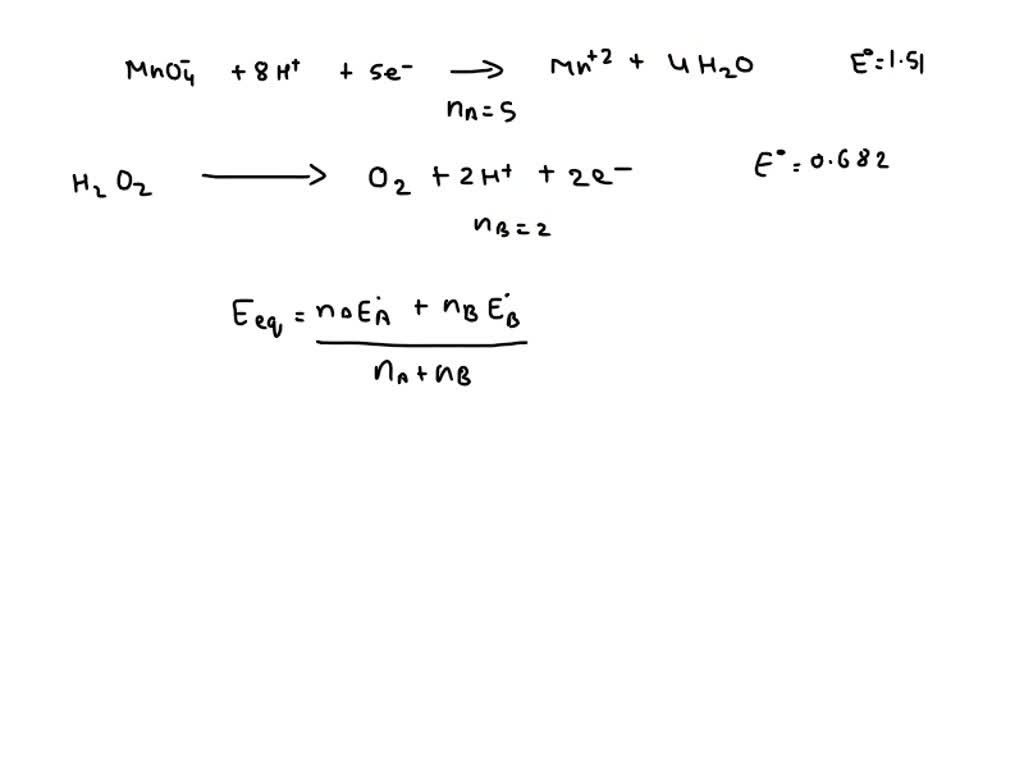 MnO₄⁻ + 8H⁺ + 5e⁻ ⟶ Mn⁺² + 4H₂O E° = 1.51
n_A = 5
H₂O₂ ⟶ O₂ + 2H⁺ + 2e⁻ E° = 0.682
n_B = 2
E_eq = n_A E°_A + n_B E°_B
n_A + n_B